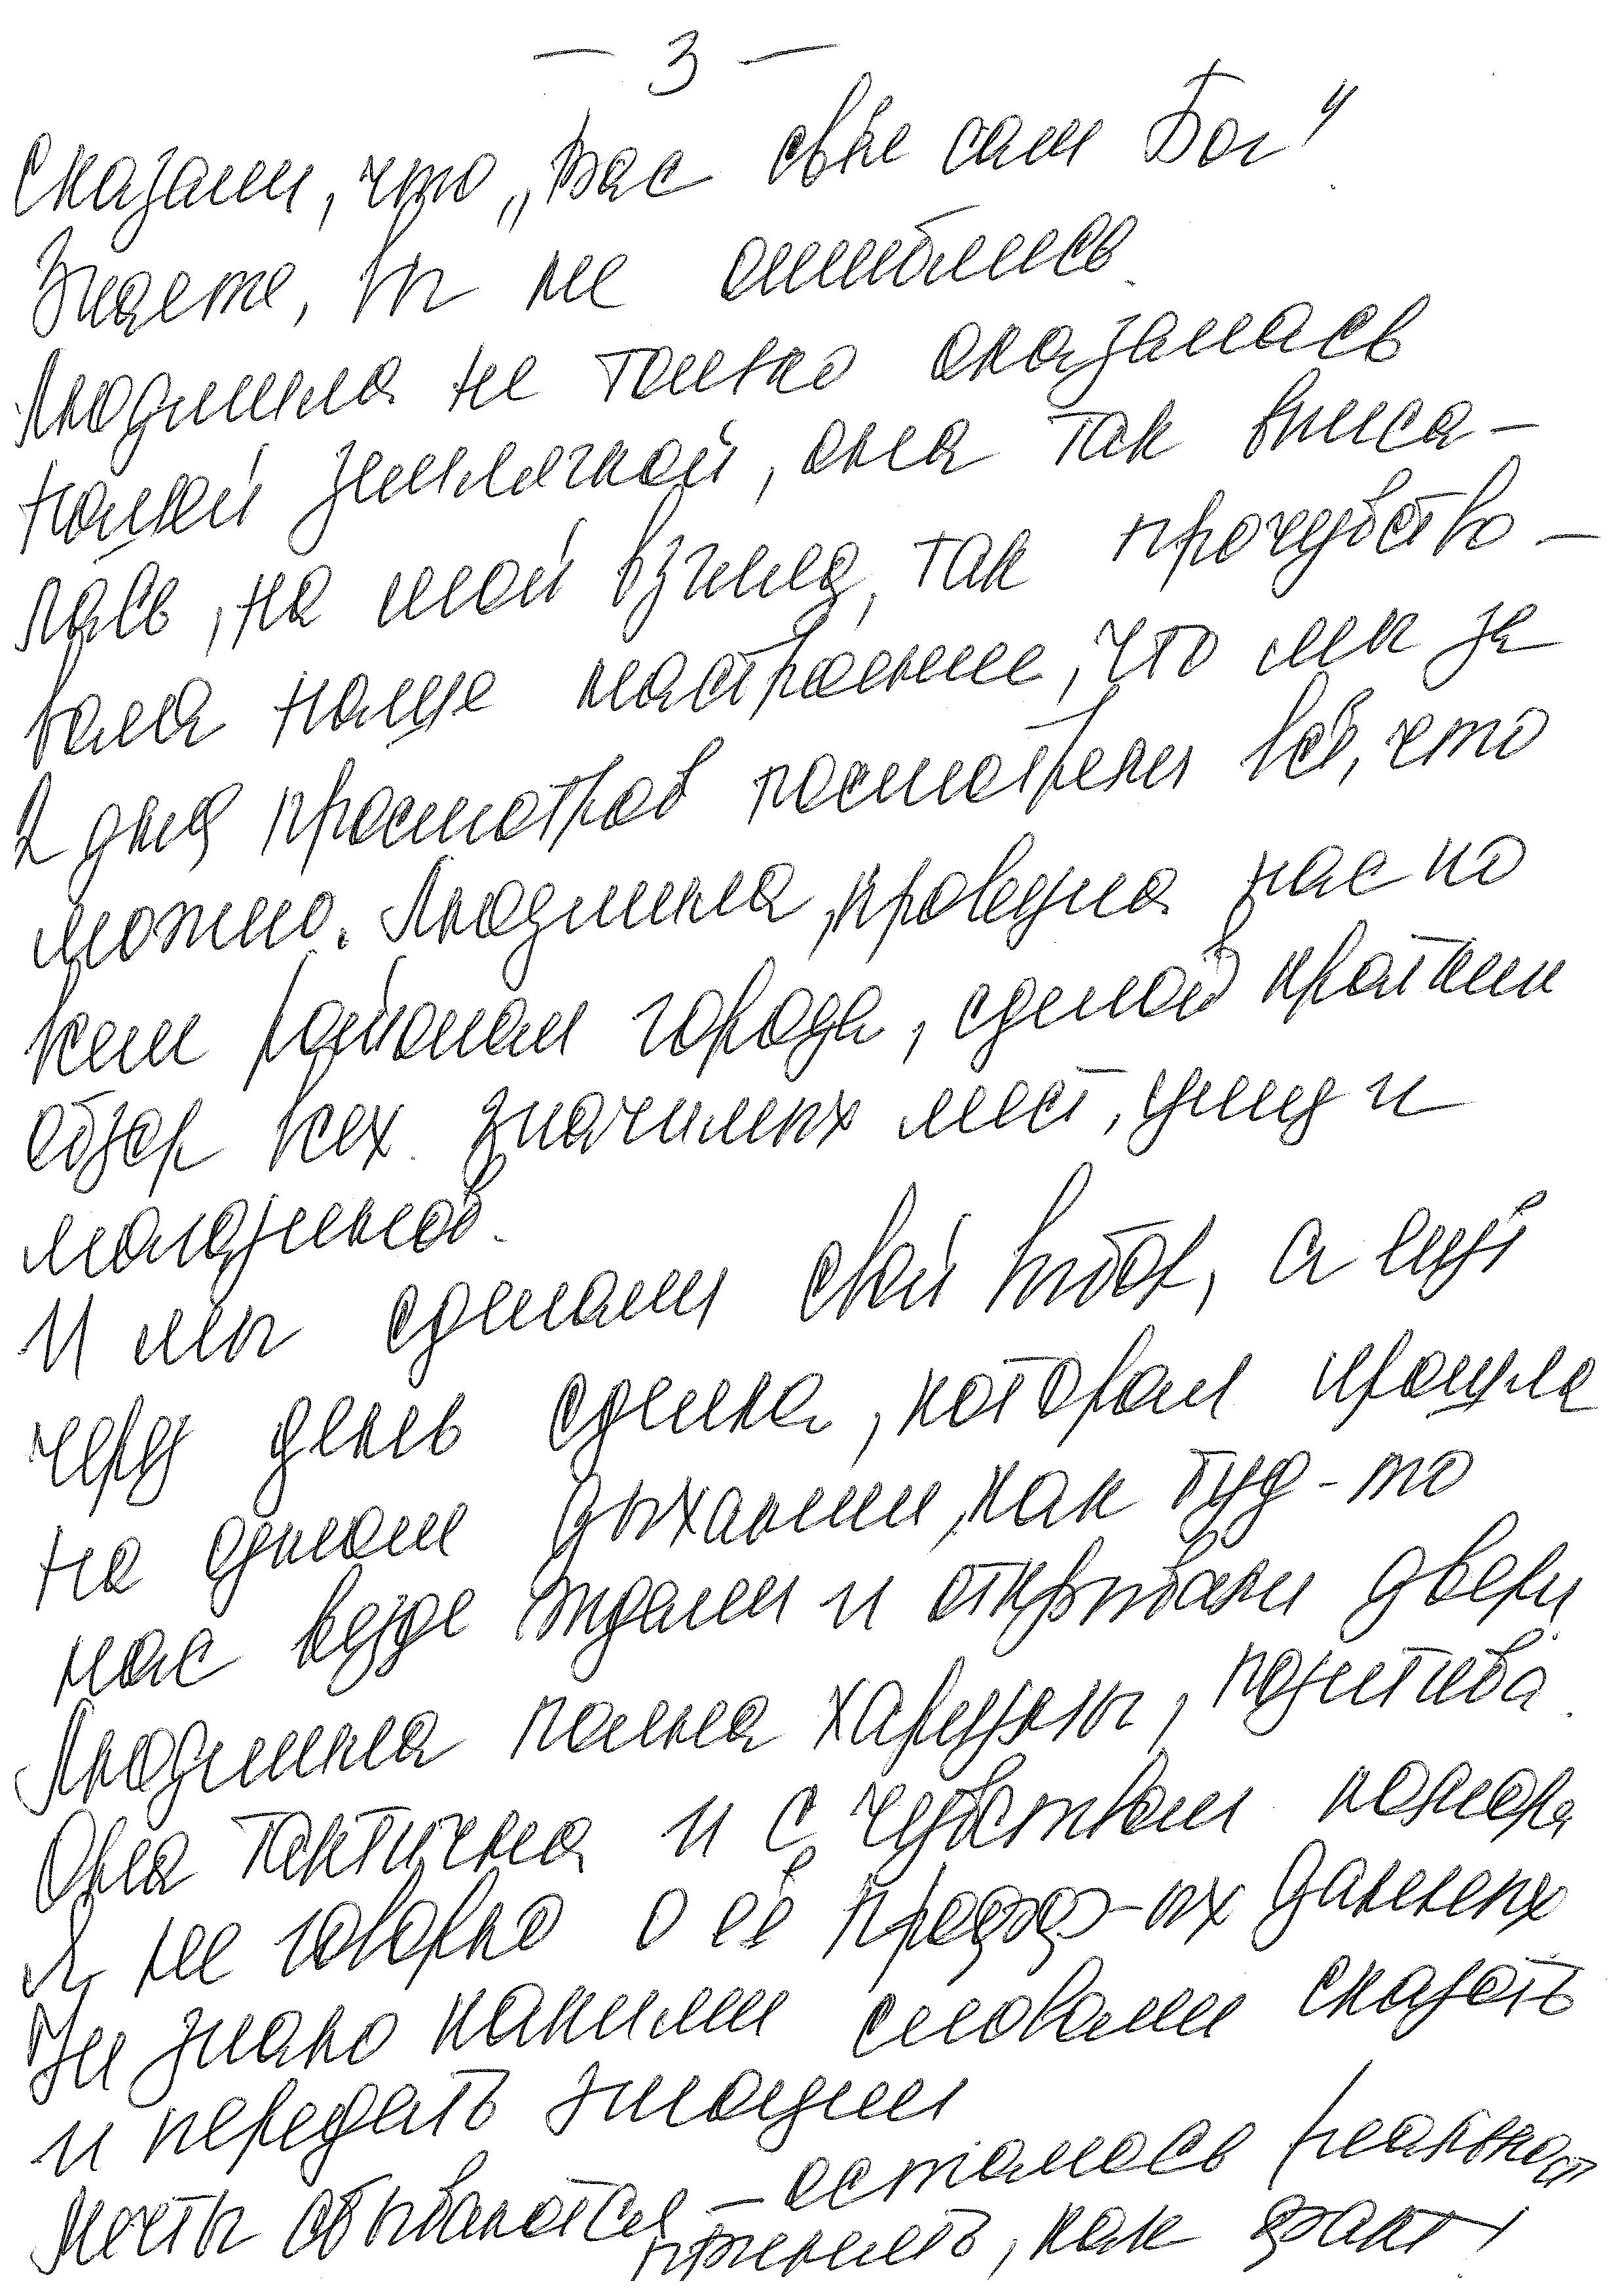 - 3 -
сказали, что „Вас свёл сам Бог"
Знаете, Вы не ошиблись.
Людмила не только оказалась
нашей землячкой, она так вписа-
лась, на мой взгляд, так прочувство-
вала наше настроение, что мы за
2 дня просмотров посмотрели всё, что
можно. Людмила, провезла нас по
всем районам города, сделав краткий
обзор всех значимых мест, улиц и
магазинов.
И мы сделали свой выбор, а ещё
через день сделка, которая прошла
на одном дыхании, как буд-то
нас везде ждали и открывали двери.
Людмила полна харизмы, позитива.
Она тактична и с чувством юмора
Я не говорю о её професс-ых данных
Не знаю какими словами сказать
и передать эмоции
Мечты сбываются – осталось реальност
принять, как факт!